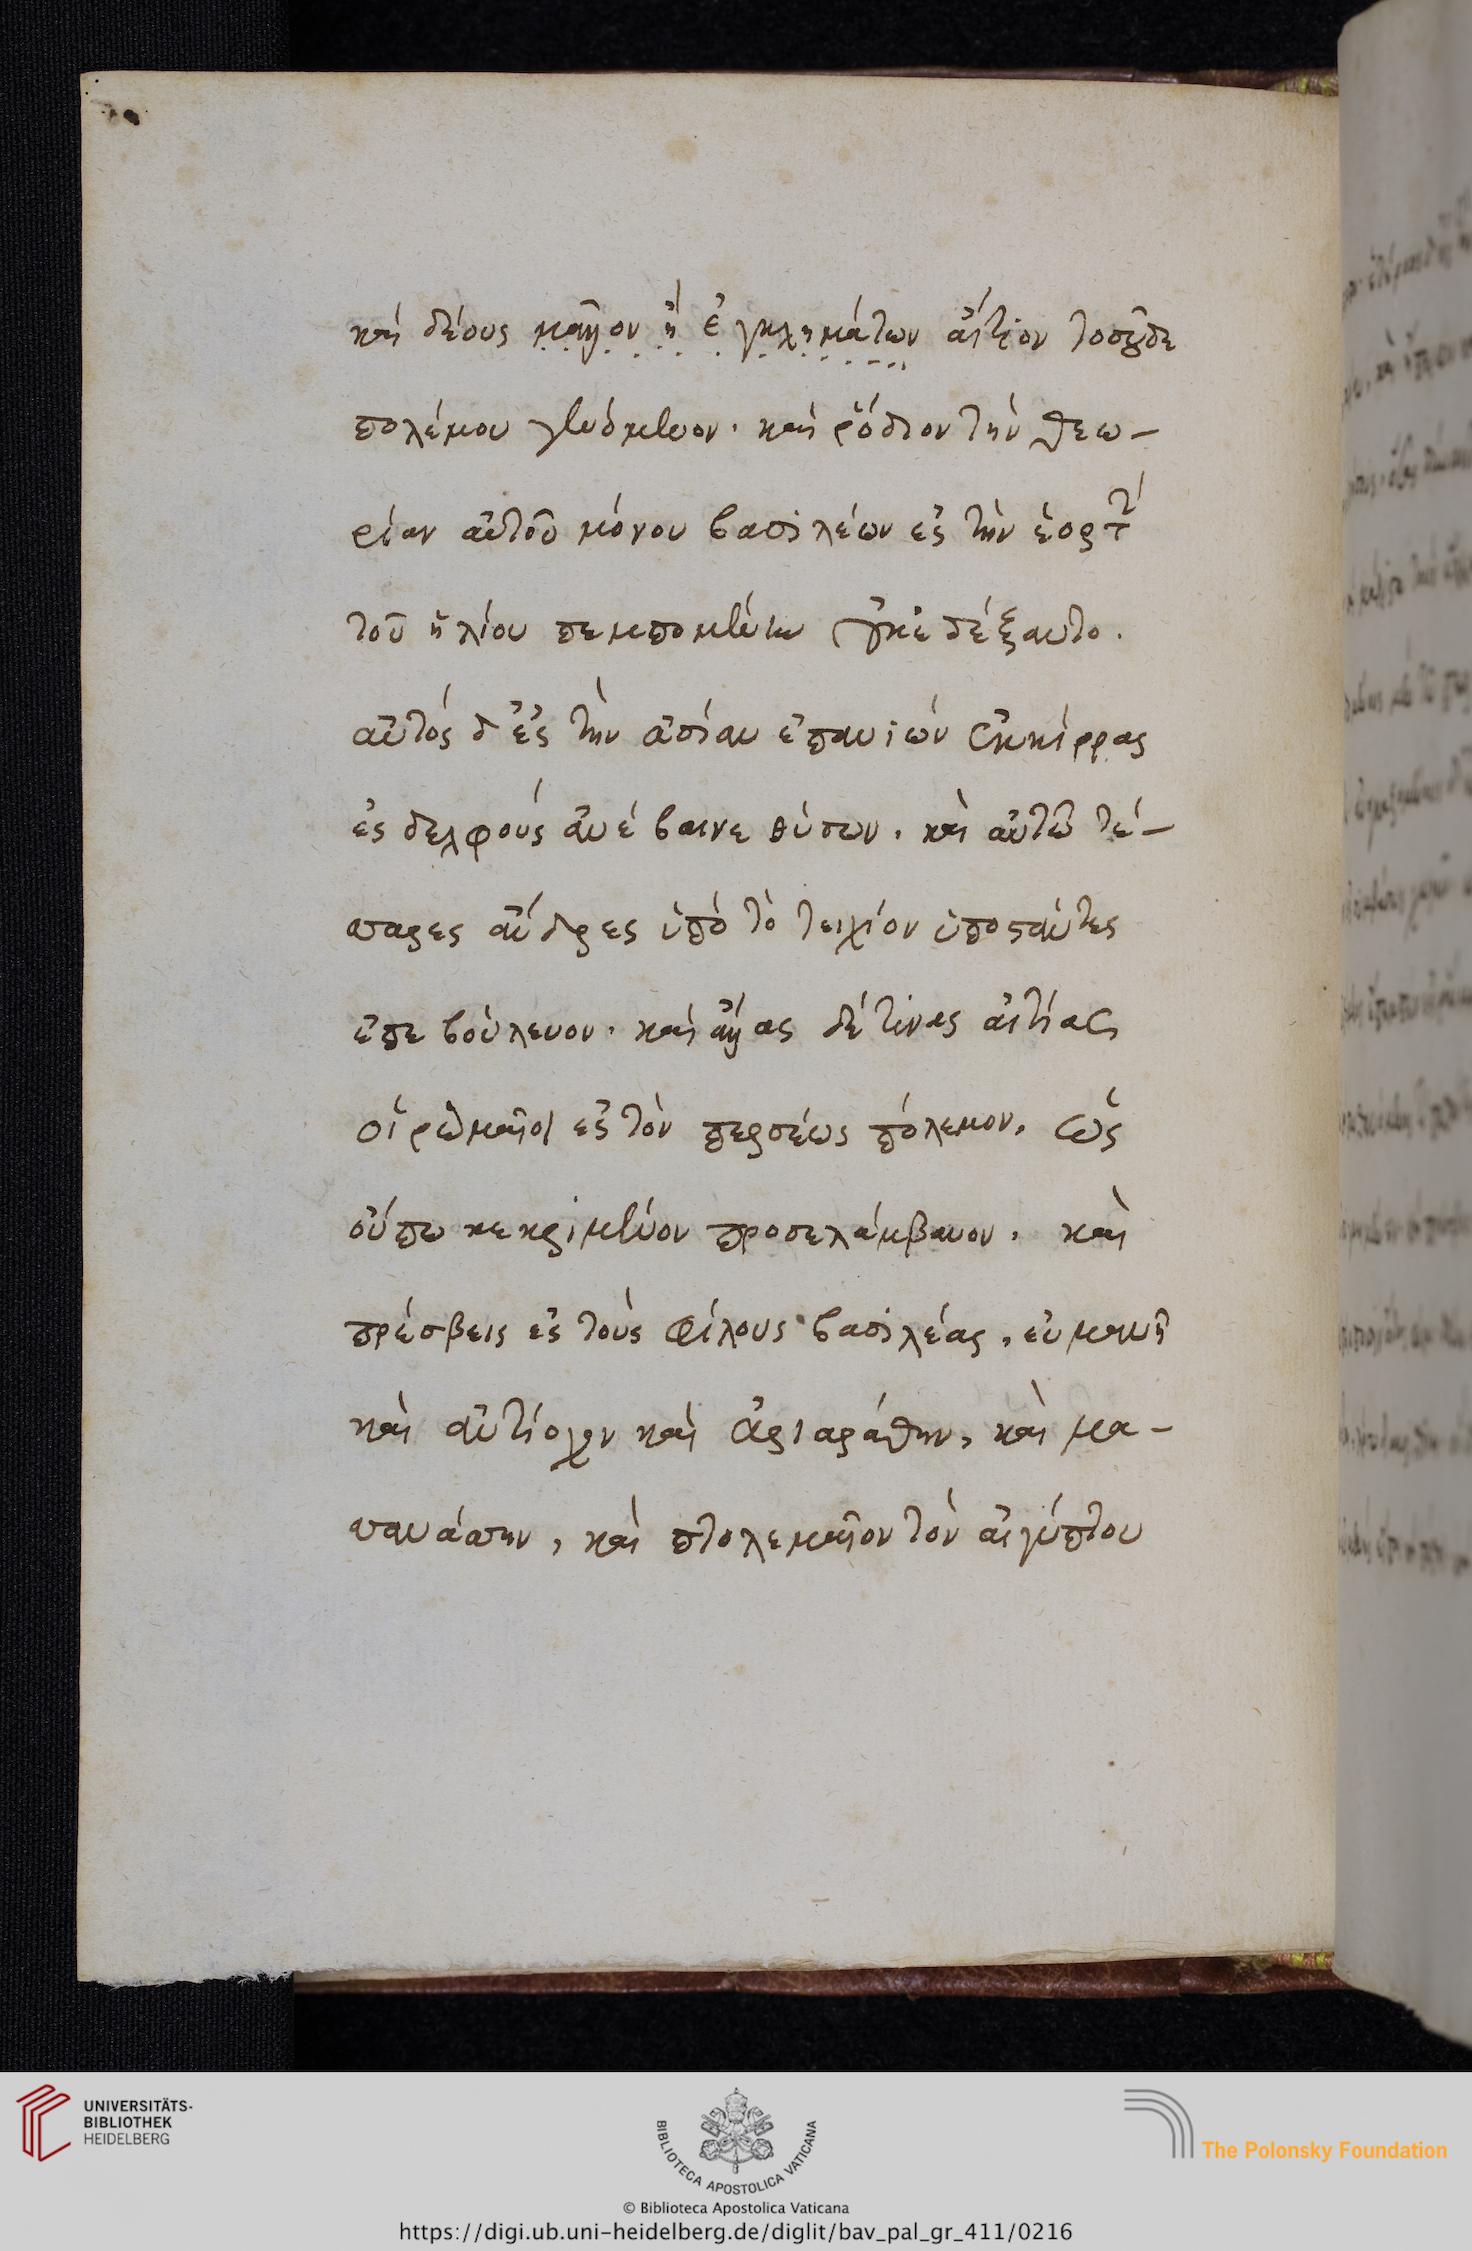 καὶ δέους μᾶλλον ἢ ἐγκλημάτων αἴτιον τοσοῦδε
πολέμου γενόμενον. καὶ ῥόδιον τὴν θεω-
ρίαν αὐτοῦ μόνου βασιλέων ἐς τὴν ἑορτὴν
τοῦ ἡλίου πεμπομένην οὐκ ἐδέξαντο.
αὐτός δ' ἐς τὴν ἀσίαν ἐπανιών ἐκ κίρρας
ἐς δελφοὺς ἀνέβαινε θύσων. καὶ αὐτῶ τέ-
σσαρες ἄνδρες ὑπὸ τὸ τειχίον ὑποστάντες
ἐπεβούλευον. καὶ ἄλλας δέ τινας αἰτίας
οἱ ρωμαῖοι ἐς τὸν περσέως πόλεμον, ὡς
οὔπω κεκριμένον προσελάμβανον. καὶ
πρέσβεις ἐς τοὺς φίλους βασιλέας, εὐμενῆ
καὶ ἀντίοχον καὶ ἀριαράθην, καὶ μα-
σσανάσσην, καὶ πτολεμαῖον τὸν αἰγύπτου
UNIVERSITÄTS-
BIBLIOTHEK
HEIDELBERG
BIBLIOTECA APOSTOLICA VATICANA
The Polonsky Foundation
© Biblioteca Apostolica Vaticana
https://digi.ub.uni-heidelberg.de/diglit/bav_pal_gr_411/0216